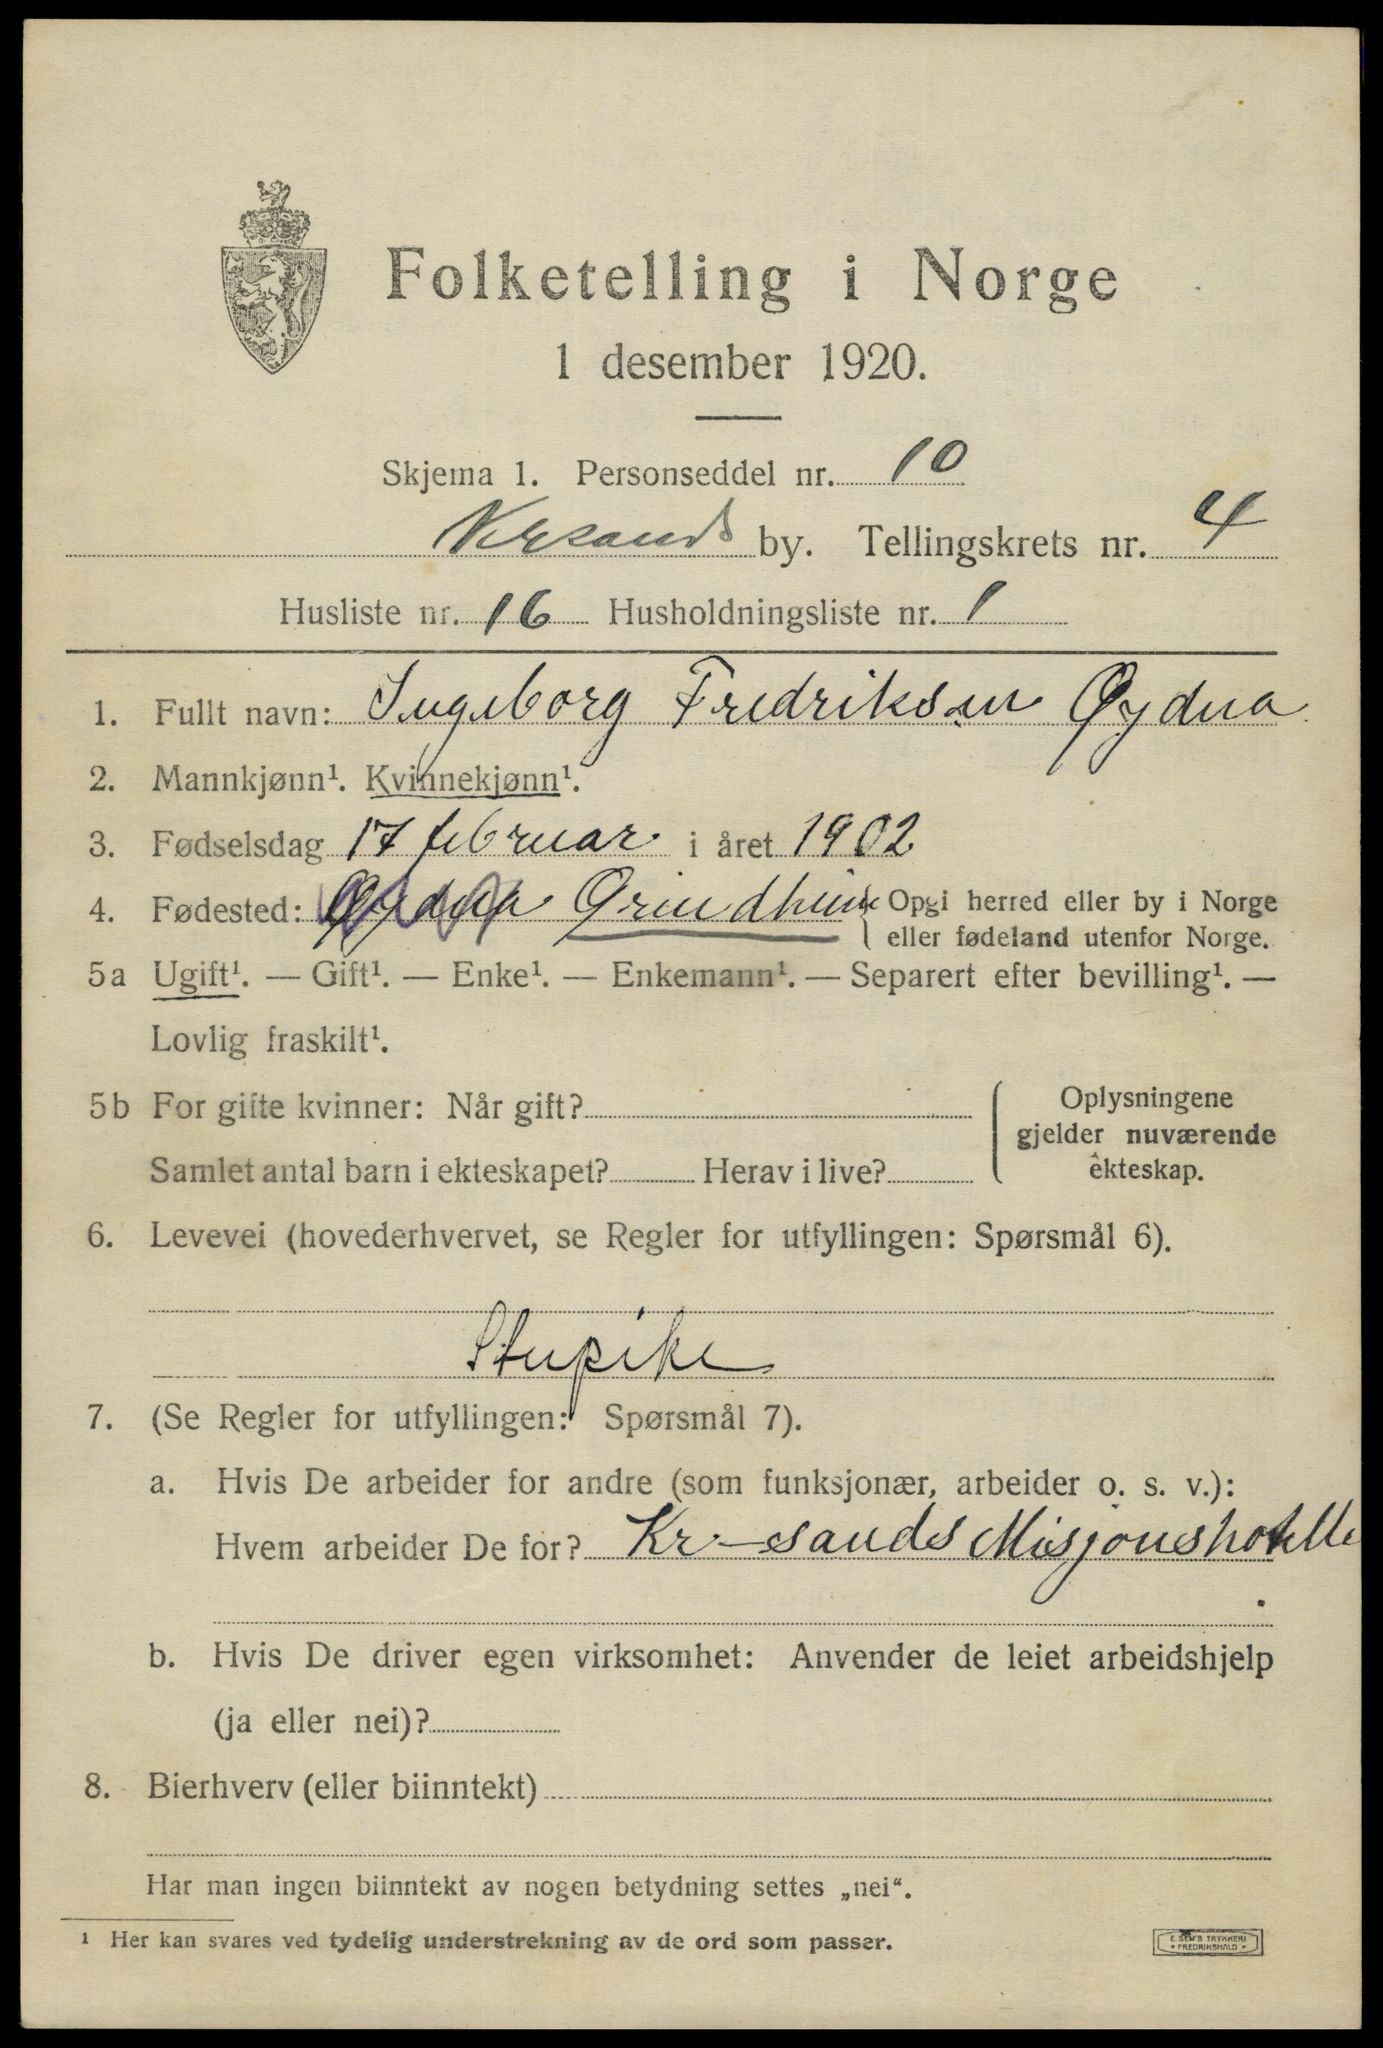 Folketelling i Norge
1 desember 1920.
Skjema 1. Personseddel nr. 10
Krsand by. Tellingskrets nr. 4
Husliste nr. 16 Husholdningsliste nr. 1
1. Fullt navn: Ingeborg Fredriksen Øydna
2. Mannkjønn¹. Kvinnekjønn¹.
3. Fødselsdag 17 februar i året 1902
4. Fødested: Øydna Grindheim { Opgi herred eller by i Norge
eller fødeland utenfor Norge.
5a Ugift¹. — Gift¹. — Enke¹. — Enkemann¹. — Separert efter bevilling¹. —
Lovlig fraskilt¹.
5b For gifte kvinner: Når gift?
Samlet antal barn i ekteskapet? Herav i live?
Oplysningene
gjelder nuværende
ekteskap.
6. Levevei (hovederhvervet, se Regler for utfyllingen: Spørsmål 6).
Stupike
7. (Se Regler for utfyllingen: Spørsmål 7).
a. Hvis De arbeider for andre (som funksjonær, arbeider o. s. v.):
Hvem arbeider De for? Kr-sands Misjonshotelle
b. Hvis De driver egen virksomhet: Anvender de leiet arbeidshjelp
(ja eller nei)?
8. Bierhverv (eller biinntekt)
Har man ingen biinntekt av nogen betydning settes „nei“.
¹ Her kan svares ved tydelig understrekning av de ord som passer.
E. SEM'S TRYKKERI
FREDRIKSHALD